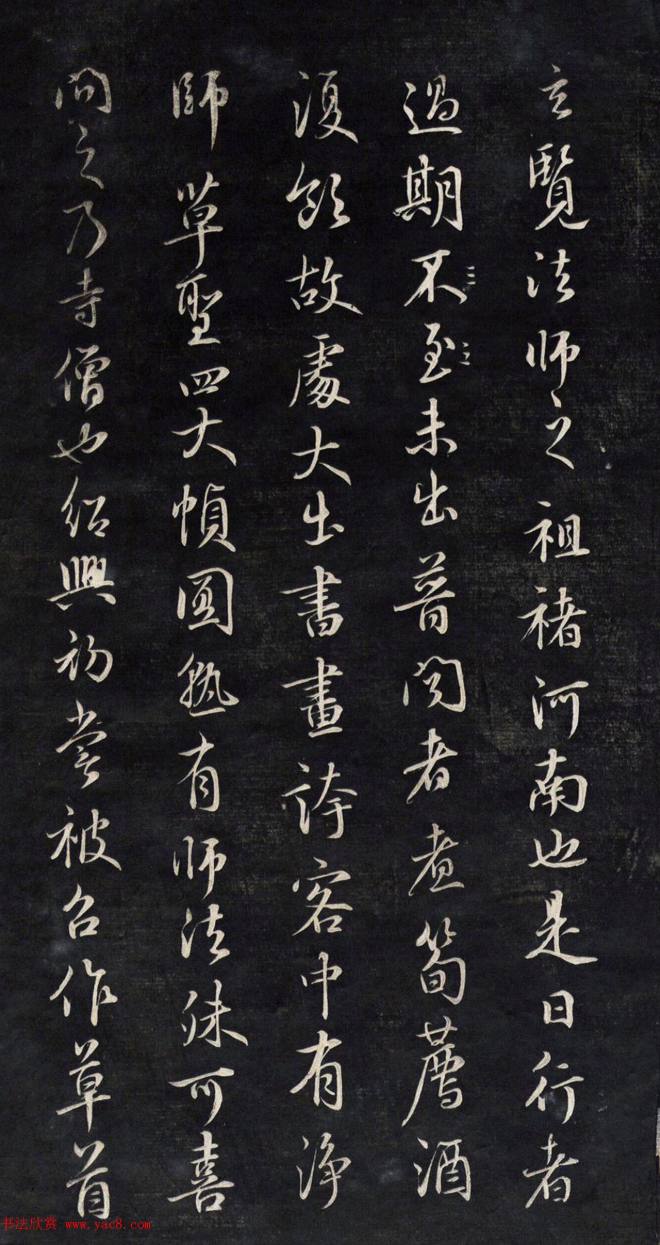 玄覽法师之祖褚河南也是日行者
過期不至未出普閔者煮筍薦酒
復飲故處大出書畫誇客中有淨
師草聖四大幀圓熟有师法殊可喜
問之乃寺僧也紹興初嘗被召作草首
书法欣赏 www.yac8.com